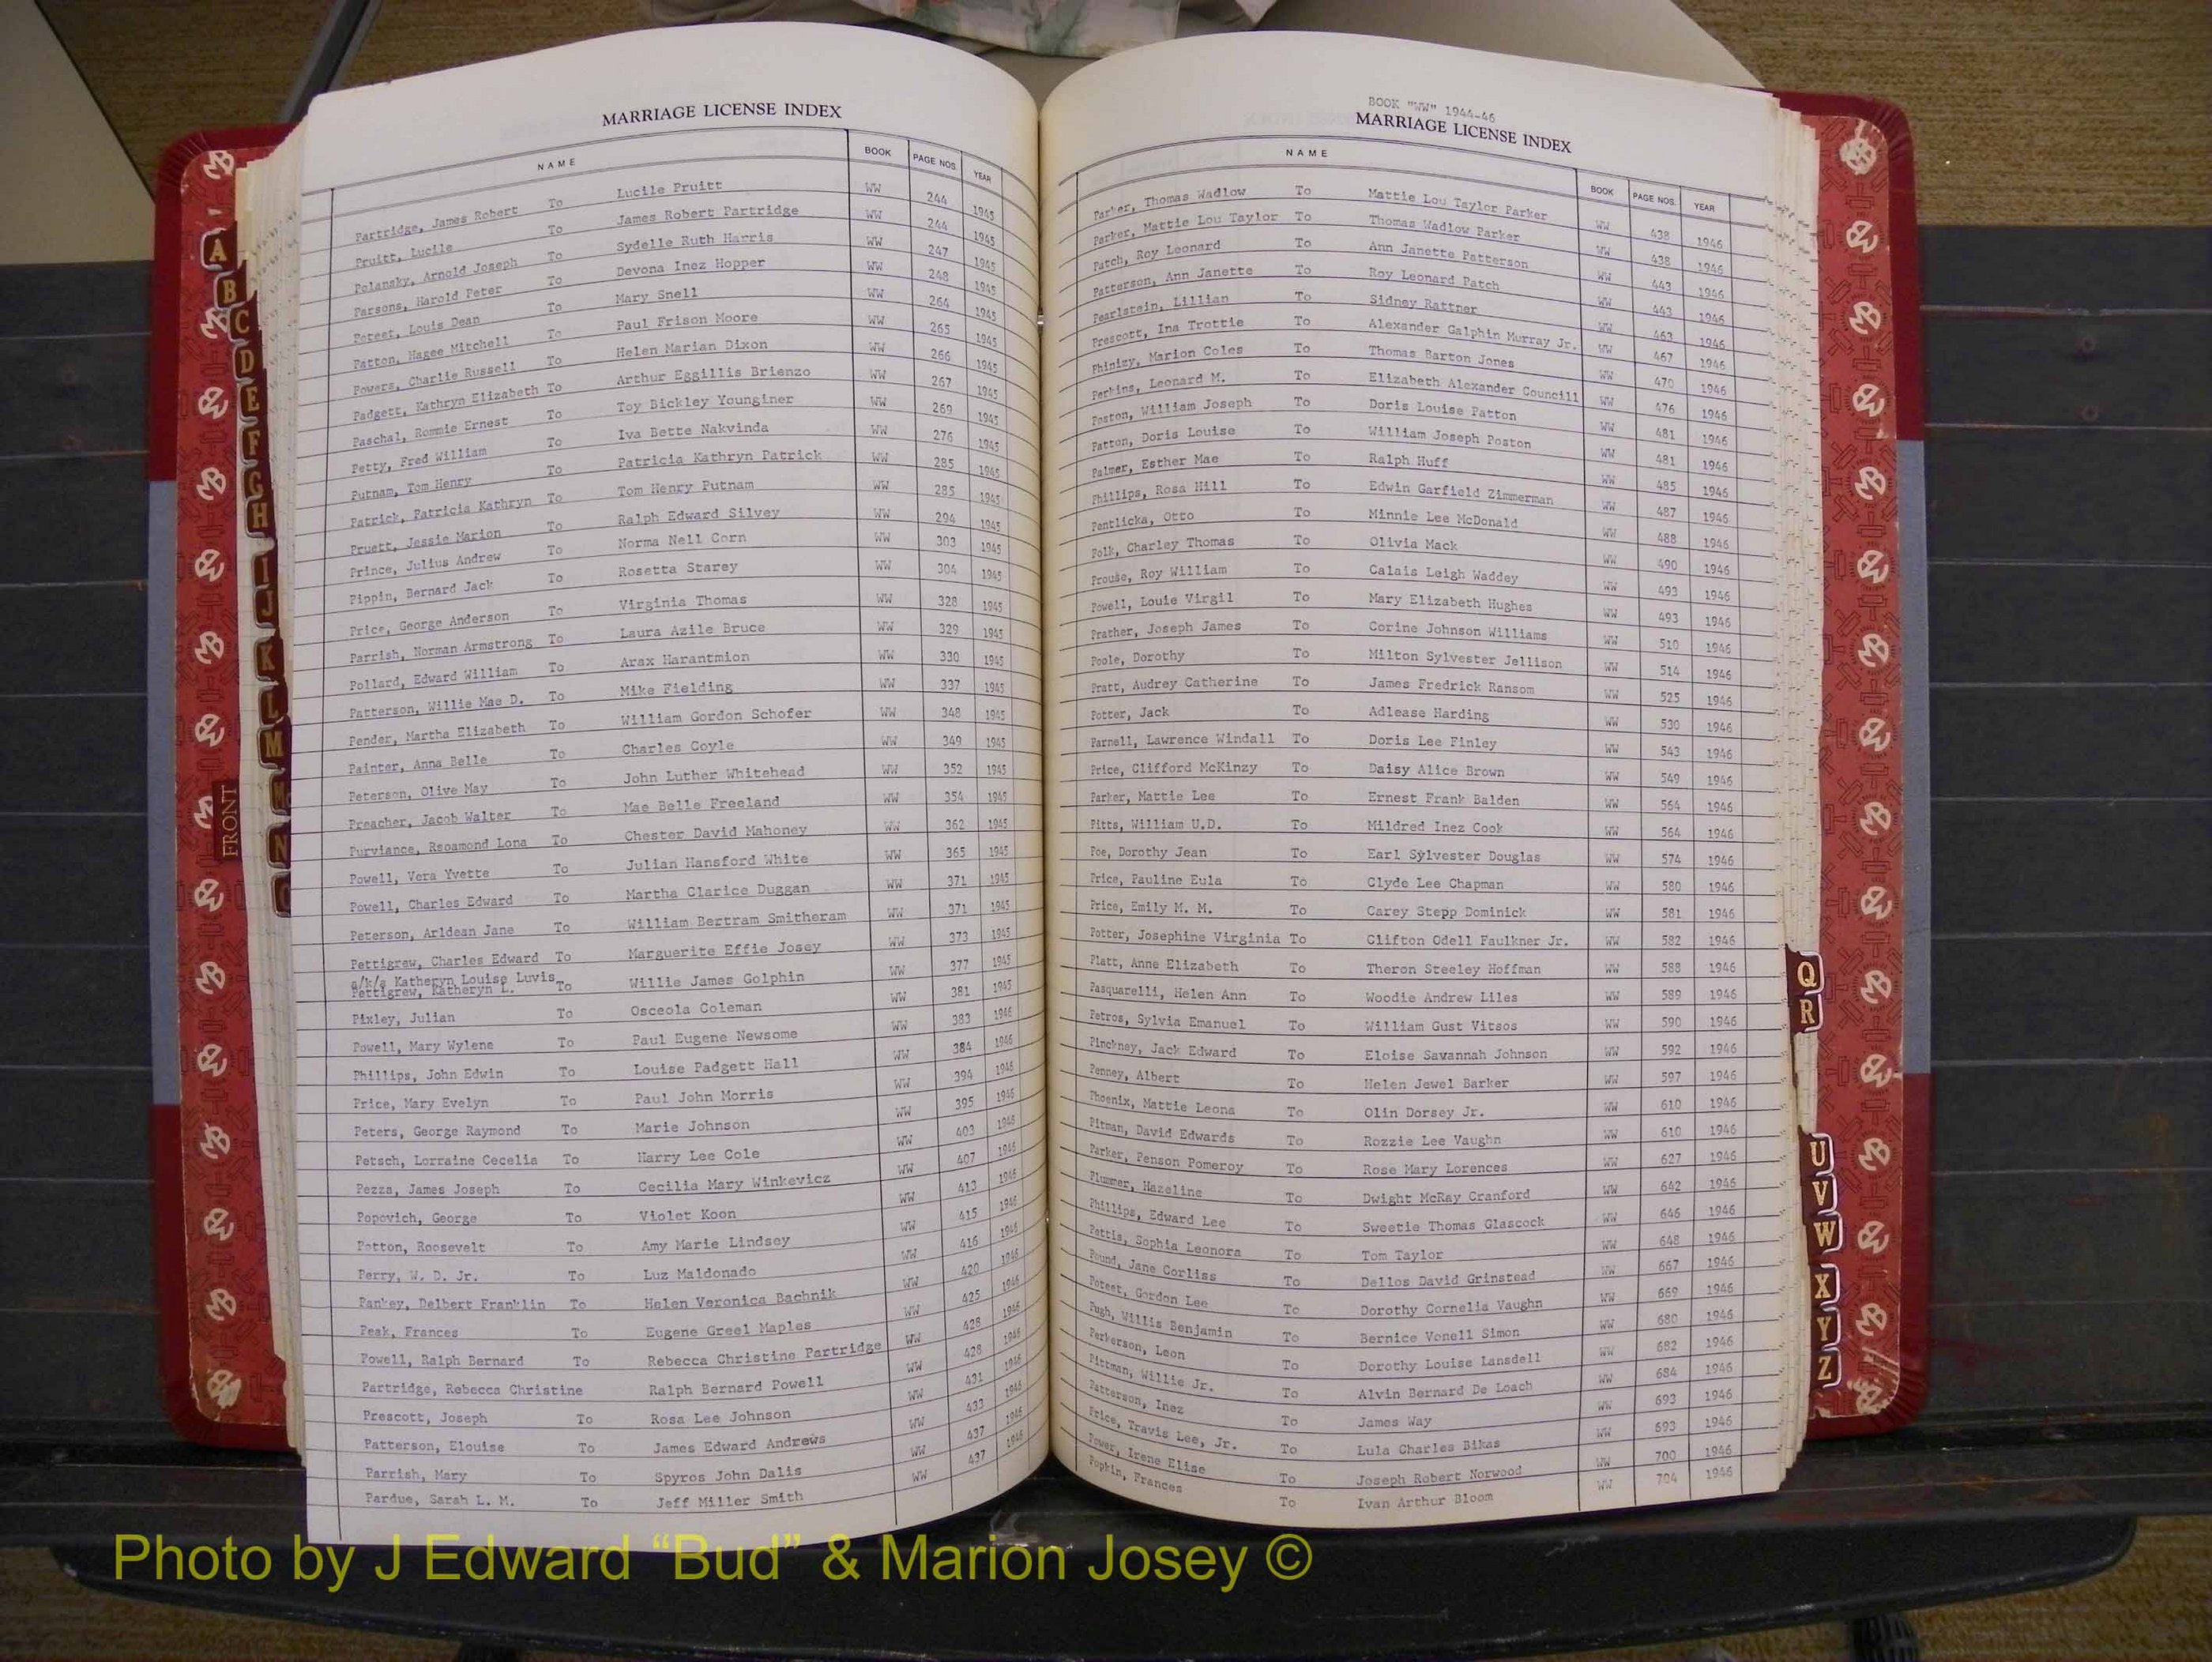 MARRIAGE LICENSE INDEX
NAME BOOK PAGE NOS. YEAR
Partridge, James Robert To Lucile Pruitt WW 244 1945
Pruitt, Lucile To James Robert Partridge WW 244 1945
Polansky, Arnold Joseph To Sydelle Ruth Harris WW 247 1945
Parsons, Harold Peter To Devona Inez Hopper WW 248 1945
Poteet, Louis Dean To Mary Snell WW 264 1945
Patton, Hagee Mitchell To Paul Frison Moore WW 265 1945
Powers, Charlie Russell To Helen Marian Dixon WW 266 1945
Padgett, Kathryn Elizabeth To Arthur Eggillis Brienzo WW 267 1945
Paschal, Rommie Ernest To Toy Bickley Younginer WW 269 1945
Petty, Fred William To Iva Bette Nakvinda WW 276 1945
Putnam, Tom Henry To Patricia Kathryn Patrick WW 285 1945
Patrick, Patricia Kathryn To Tom Henry Putnam WW 285 1945
Pruett, Jessie Marion To Ralph Edward Silvey WW 294 1945
Prince, Julius Andrew To Norma Nell Corn WW 303 1945
Pippin, Bernard Jack To Rosetta Starey WW 304 1945
Price, George Anderson To Virginia Thomas WW 328 1945
Parrish, Norman Armstrong To Laura Azile Bruce WW 329 1945
Pollard, Edward William To Arax Harantmion WW 330 1945
Patterson, Willie Mae D. To Mike Fielding WW 337 1945
Pender, Martha Elizabeth To William Gordon Schofer WW 348 1945
Painter, Anna Belle To Charles Coyle WW 349 1945
Peterson, Olive May To John Luther Whitehead WW 352 1945
Preacher, Jacob Walter To Mae Belle Freeland WW 354 1945
Purviance, Rsoamond Lona To Chester David Mahoney WW 362 1945
Powell, Vera Yvette To Julian Hansford White WW 365 1945
Powell, Charles Edward To Martha Clarice Duggan WW 371 1945
Peterson, Arldean Jane To William Bertram Smitheram WW 371 1945
Pettigrew, Charles Edward To Marguerite Effie Josey WW 373 1945
a/k/a Katheryn Louise Luvis
Pettigrew, Katheryn L. To Willie James Golphin WW 377 1945
Pixley, Julian To Osceola Coleman WW 381 1945
Powell, Mary Wylene To Paul Eugene Newsome WW 383 1946
Phillips, John Edwin To Louise Padgett Hall WW 384 1946
Price, Mary Evelyn To Paul John Morris WW 394 1946
Peters, George Raymond To Marie Johnson WW 395 1946
Petsch, Lorraine Cecelia To Harry Lee Cole WW 403 1946
Pezza, James Joseph To Cecilia Mary Winkevicz WW 407 1946
Popovich, George To Violet Koon WW 413 1946
Patton, Roosevelt To Amy Marie Lindsey WW 415 1946
Perry, W. D. Jr. To Luz Maldonado WW 416 1946
Pankey, Delbert Franklin To Helen Veronica Bachnik WW 420 1946
Peak, Frances To Eugene Greel Maples WW 425 1946
Powell, Ralph Bernard To Rebecca Christine Partridge WW 428 1946
Partridge, Rebecca Christine Ralph Bernard Powell WW 428 1946
Prescott, Joseph To Rosa Lee Johnson WW 431 1946
Patterson, Elouise To James Edward Andrews WW 433 1946
Parrish, Mary To Spyros John Dalis WW 437 1946
Pardue, Sarah L. M. To Jeff Miller Smith WW 437 1946
BOOK "WW" 1944-46
MARRIAGE LICENSE INDEX
NAME BOOK PAGE NOS. YEAR
Parker, Thomas Wadlow To Mattie Lou Taylor Parker WW 438 1946
Parker, Mattie Lou Taylor To Thomas Wadlow Parker WW 438 1946
Patch, Roy Leonard To Ann Janette Patterson WW 443 1946
Patterson, Ann Janette To Roy Leonard Patch WW 443 1946
Pearlstein, Lillian To Sidney Rattner WW 463 1946
Prescott, Ina Trottie To Alexander Galphin Murray Jr. WW 467 1946
Phinizy, Marion Coles To Thomas Barton Jones WW 470 1946
Perkins, Leonard M. To Elizabeth Alexander Councill WW 476 1946
Poston, William Joseph To Doris Louise Patton WW 481 1946
Patton, Doris Louise To William Joseph Poston WW 481 1946
Palmer, Esther Mae To Ralph Huff WW 485 1946
Phillips, Rosa Hill To Edwin Garfield Zimmerman WW 487 1946
Pentlicka, Otto To Minnie Lee McDonald WW 488 1946
Polk, Charley Thomas To Olivia Mack WW 490 1946
Prouse, Roy William To Calais Leigh Waddey WW 493 1946
Powell, Louie Virgil To Mary Elizabeth Hughes WW 493 1946
Prather, Joseph James To Corine Johnson Williams WW 510 1946
Poole, Dorothy To Milton Sylvester Jellison WW 514 1946
Pratt, Audrey Catherine To James Fredrick Ransom WW 525 1946
Potter, Jack To Adlease Harding WW 530 1946
Parnell, Lawrence Windall To Doris Lee Finley WW 543 1946
Price, Clifford McKinzy To Daisy Alice Brown WW 549 1946
Parker, Mattie Lee To Ernest Frank Balden WW 564 1946
Pitts, William U.D. To Mildred Inez Cook WW 564 1946
Poe, Dorothy Jean To Earl Sylvester Douglas WW 574 1946
Price, Pauline Eula To Clyde Lee Chapman WW 580 1946
Price, Emily M. M. To Carey Stepp Dominick WW 581 1946
Potter, Josephine Virginia To Clifton Odell Faulkner Jr. WW 582 1946
Platt, Anne Elizabeth To Theron Steeley Hoffman WW 588 1946
Pasquarelli, Helen Ann To Woodie Andrew Liles WW 589 1946
Petros, Sylvia Emanuel To William Gust Vitsos WW 590 1946
Pinckney, Jack Edward To Eloise Savannah Johnson WW 592 1946
Penney, Albert To Helen Jewel Barker WW 597 1946
Phoenix, Mattie Leona To Olin Dorsey Jr. WW 610 1946
Pitman, David Edwards To Rozzie Lee Vaughn WW 610 1946
Parker, Penson Pomeroy To Rose Mary Lorences WW 627 1946
Plummer, Hazeline To Dwight McRay Cranford WW 642 1946
Phillips, Edward Lee To Sweetie Thomas Glascock WW 646 1946
Pettis, Sophia Leonora To Tom Taylor WW 648 1946
Pound, Jane Corliss To Dellos David Grinstead WW 667 1946
Poteet, Gordon Lee To Dorothy Cornelia Vaughn WW 669 1946
Pugh, Willis Benjamin To Bernice Vonell Simon WW 680 1946
Parkerson, Leon To Dorothy Louise Lansdell WW 682 1946
Pittman, Willie Jr. To Alvin Bernard De Loach WW 684 1946
Patterson, Inez To James Way WW 693 1946
Price, Travis Lee, Jr. To Lula Charles Bikas WW 693 1946
Power, Irene Elise To Joseph Robert Norwood WW 700 1946
Popkin, Frances To Ivan Arthur Bloom WW 704 1946
A
B
C
D
E
F
G
H
I
J
K
L
M
N
FRONT
Q
R
U
V
W
X
Y
Z
Photo by J Edward “Bud” & Marion Josey ©